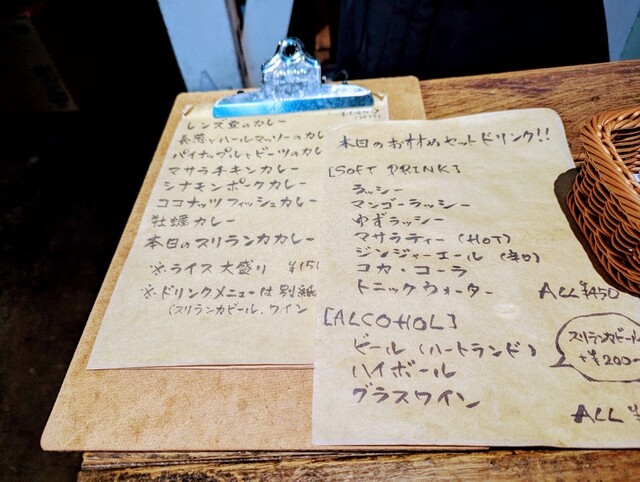 レンズ豆のカレー
長葱とハールマッソーのカレ
パイナップルとビーツのカレ
マサラチキンカレー
シナモンポークカレー
ココナッツフィッシュカレー
牡蠣カレー
本日のスリランカカレー
※ライス大盛り ¥150
※ドリンクメニューは別紙
(スリランカビール、ワイン
本日のおすすめセットドリンク!!
[SOFT DRINK]
ラッシー
マンゴーラッシー
ゆずラッシー
マサラティー (HOT)
ジンジャーエール (辛口)
コカ・コーラ
トニックウォーター
ALL ¥450
[ALCOHOL]
ビール (ハートランド)
ハイボール
グラスワイン
スリランカビール
+¥200
ALL ¥